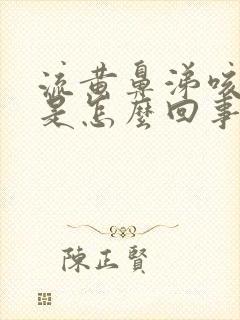 流黄鼻涕咳
是怎麼回事
陳正賢